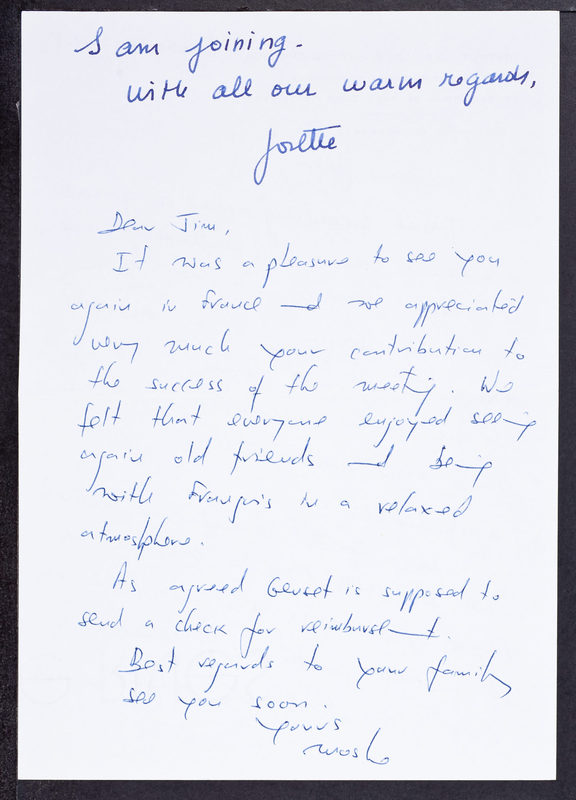 I am joining.
with all our warm regards,
Josette
Dear Jim,
It was a pleasure to see you
again in France and we appreciated
very much your contribution to
the success of the meeting. We
felt that everyone enjoyed seeing
again old friends and being
with François in a relaxed
atmosphere.
As agreed Genset is supposed to
send a check for reimbursement.
Best regards to your family
see you soon.
Yours